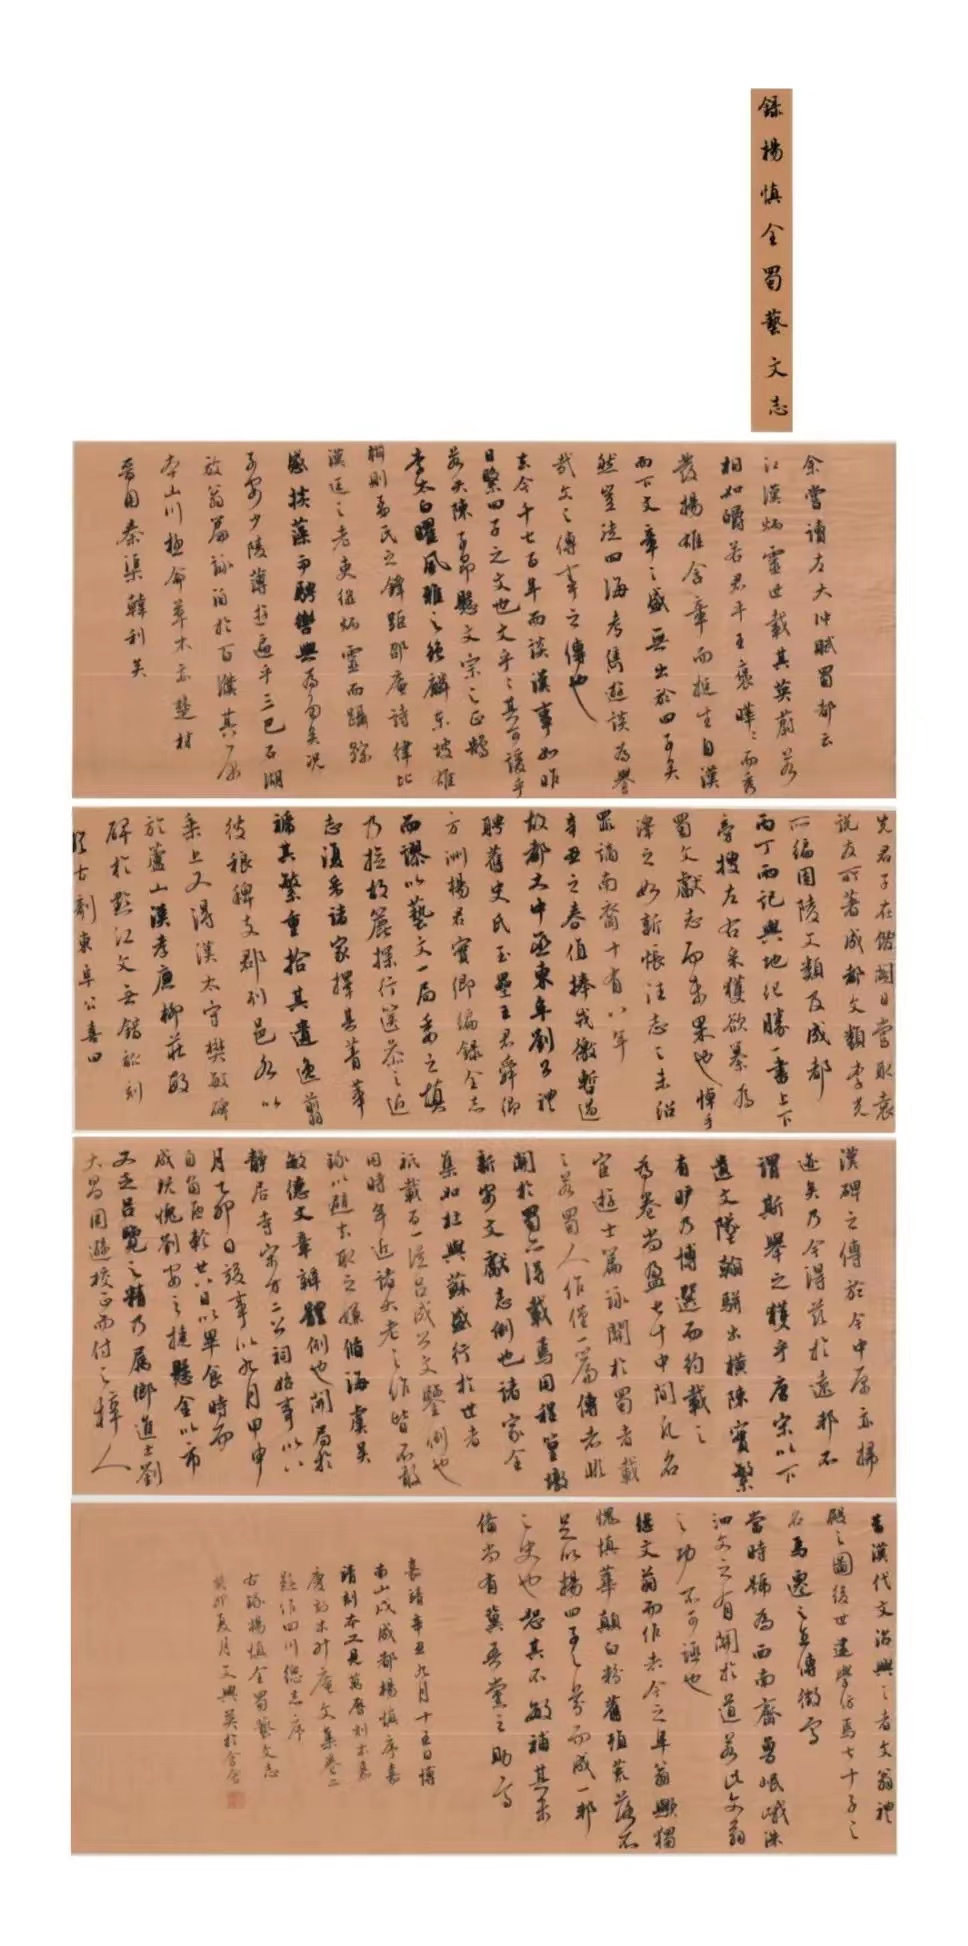 錄楊慎全蜀藝文志
余嘗讀左太沖賦蜀都云
江漢炳靈世載其英蔚若
相如皭若君平王褒暐〻而秀
發揚雄含章而挺生自漢
而下文章之盛無出於四子矣
然置諸四海考雋遊談為譽
哉文之傳事之傳也
去今千七百年而談漢事如昨
日繄四子之文也文乎〻其可諼乎
若夫陳子昂懸文宗之正鵠
李太白曜風雅之絕麟東坡雄
辯則孟氏之鋒距邵庵詩律比
漢廷之老吏繼炳靈而躡踪
感掞藻而騁轡與為勍矣況
子安少陵薄遊遍乎三巴石湖
放翁篇詠洎於百濮其原
本山川極命草木亦楚材
晉用秦渠韓利矣
先君子在館閣日嘗取袁
說友所著成都文類李光
所編固陵文類及成都
丙丁兩記輿地紀勝一書上下
旁搜左右采獲欲纂為
蜀文獻志而未果也悼手
澤之如新悵往志之未紹
罪謫南裔十有八年
辛丑之春值捧戎檄暫過
故都大中丞東阜劉公禮
聘舊史氏玉壘王君舜卿
方洲楊君實卿編錄全志
而謬以藝文一局委之慎
乃撿故簏探行篋參之近
志復采諸家擇其菁華
褫其繁重拾其遺逸翦
彼稂稗支郡列邑各以
乘上又得漢太守樊敏碑
於蘆山漢孝廉柳莊敏
碑於黔江文無銷訛刻
猶古剞東阜公喜曰
漢碑之傳於今中原亦掃
迹矣乃今得茲於遠邦不
謂斯舉之獲乎唐宋以下
遺文墜翰駢出橫陳實繁
有旷乃博選而約載之
為卷尚盈七十中間凡名
宦遊士篇詠關於蜀者載
之若蜀人作僅一篇傳者非
關於蜀亦得載焉用程篁墩
新安文獻志例也諸家全
集如杜與蘇盛行於世者
祇載百一從呂成公文鑒例也
同時年近諸大老之作皆不敢
錄以避去取之嫌循海虞吳
敏德文章辨體例也開局於
靜居寺宋方二公祠始事以八
月乙卯日竣事以九月甲申
自角匝軫廿八日以畢食時而
成扶愧劉安之捷懸金以市
又乏呂覽之精乃屬鄉進士劉
大昌周遜校正而付之梓人
昔漢代文治興之者文翁禮
殿之圖後世建學仿焉七十子之
名馬遷之立傳徵焉
當時號為西南齊魯岷峨洙
泗文之有關於道若此文翁
之功不可誣也
繼文翁而作者今之阜翁歟獨
愧慎華顛白粉舊殖荒落不
足以揚四子之芬而成一邦
之史也恕其不敏補其未
備尚有冀吾黨之助焉
嘉靖辛丑九月十五日博
南山戍成都楊慎序嘉
靖刻本又見萬曆刻本嘉
慶刻本升庵文集卷二
題作四川總志序
右錄楊慎全蜀藝文志
癸卯夏月文興